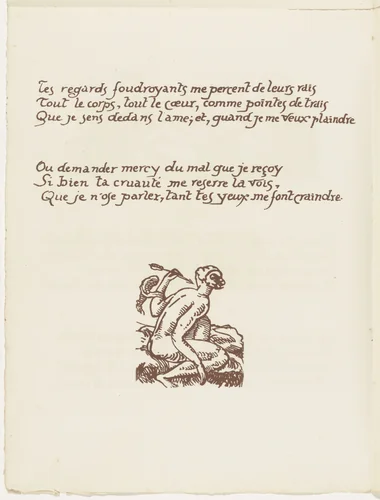 Tes regards foudroyants me percent de leurs rais
Tout le corps, tout le cœur, comme pointes de trais
Que je sens dedans l'ame; et, quand je me veux plaindre
Ou demander mercy du mal que je reçoy
Si bien ta cruauté me reserre la vois,
Que je n'ose parler, tant tes yeux me font craindre.